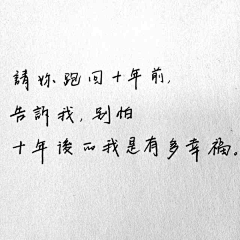 請妳跑回十年前,
告訴我,別怕
十年後的我是有多幸福。